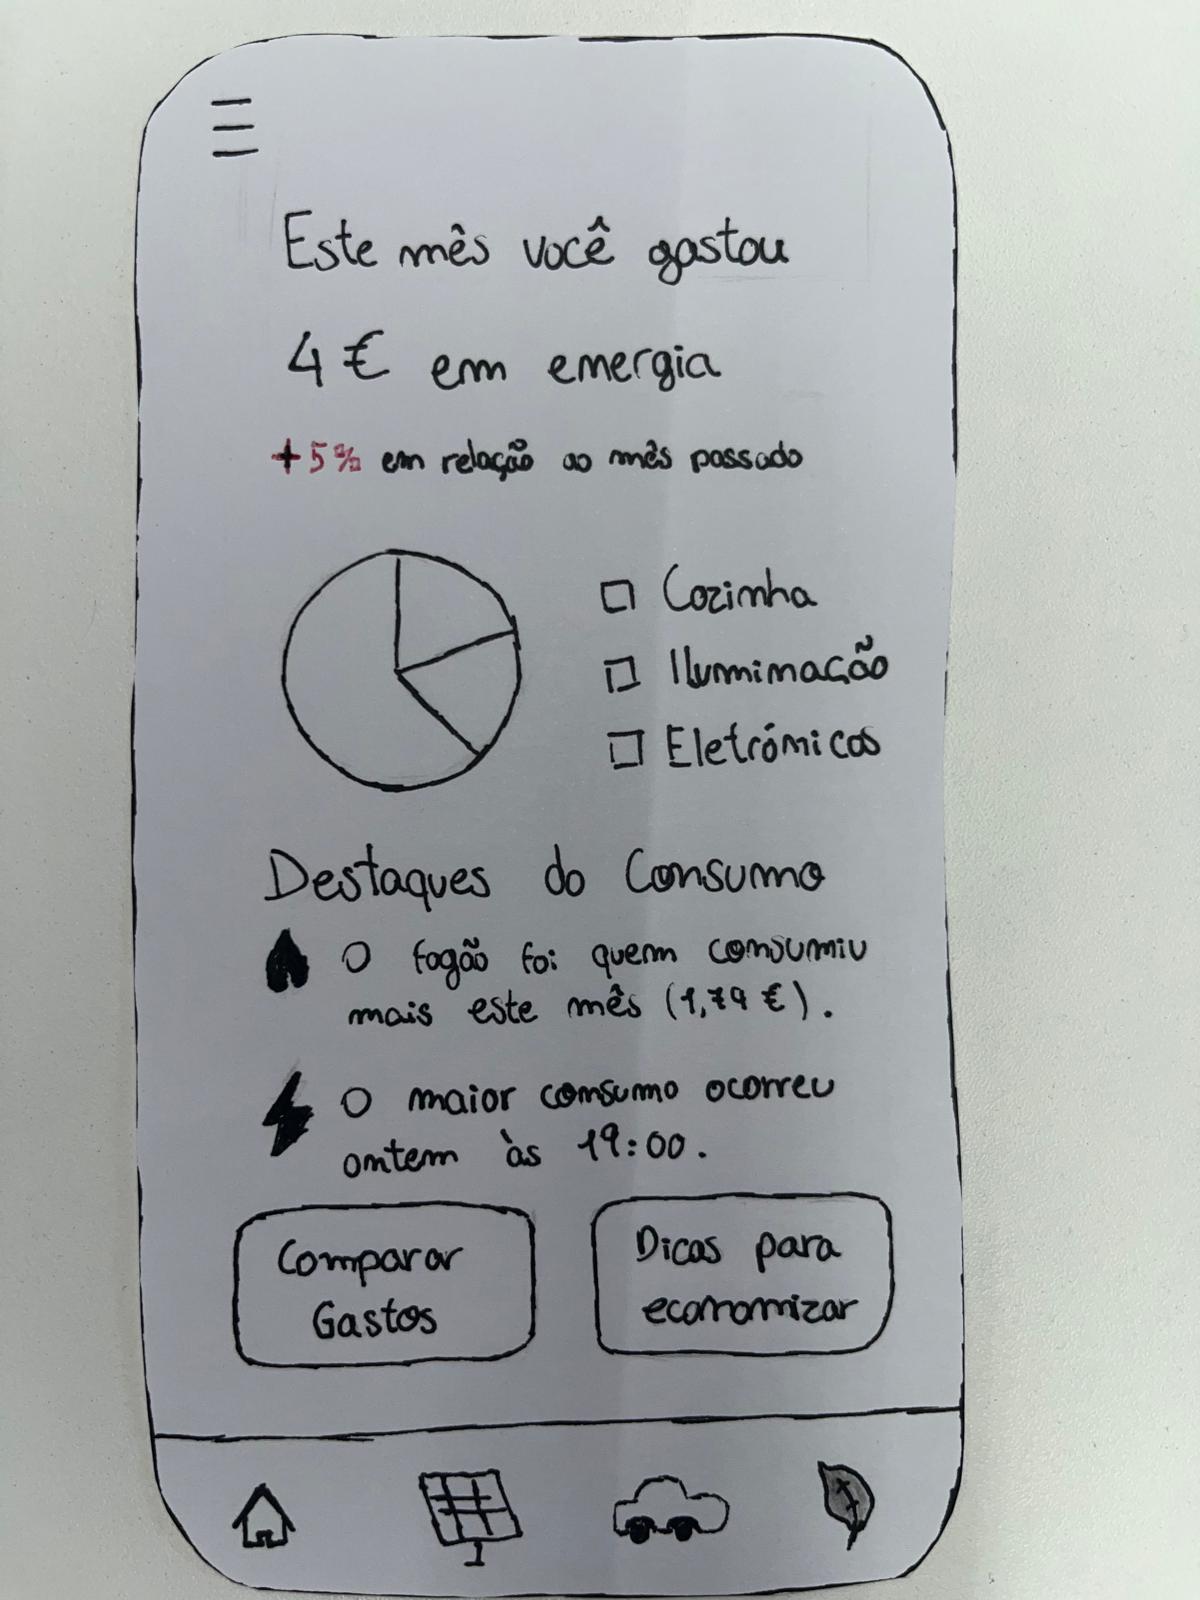 Este mês você gastou
4 € em energia
+5% em relação ao mês passado
Cozinha
Iluminação
Eletrónicos
Destaques do Consumo
O fogão foi quem consumiu
mais este mês (1,79 €).
O maior consumo ocorreu
ontem às 19:00.
Comparar
Gastos
Dicas para
economizar